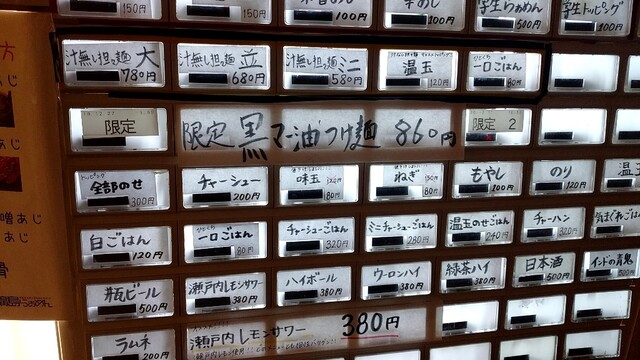 150円
150円
100円
100円
学生らぁめん
500円
学生トッピング
100円
汁無し担々麺 大
780円
汁無し担々麺 並
680円
汁無し担々麺 ミニ
580円
温玉
120円
一口ごはん
80円
限定
限定 黒マー油つけ麺 860円
限定 2
全部のせ
300円
チャーシュー
200円
味玉
ねぎ
80円
もやし
100円
のり
120円
温玉
白ごはん
120円
一口ごはん
80円
チャーシューごはん
320円
ミニチャーシューごはん
280円
温玉のせごはん
240円
チャーハン
320円
気まぐれごはん
瓶ビール
500円
瀬戸内レモンサワー
380円
ハイボール
380円
ウーロンハイ
380円
緑茶ハイ
380円
日本酒
500円
インドの青鬼
500円
ラムネ
200円
瀬戸内レモンサワー 380円